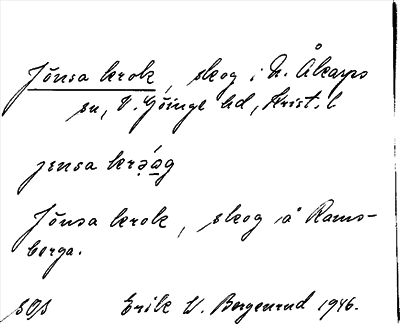 Jönsa krok, skog i N. Åkarps
sn, V. Göinge hd, Krist. l
jɛnsa krǝ́ǝg
Jönsa krok, skog å Rams-
berga.
sOs Erik W. Bergenrud 1946.